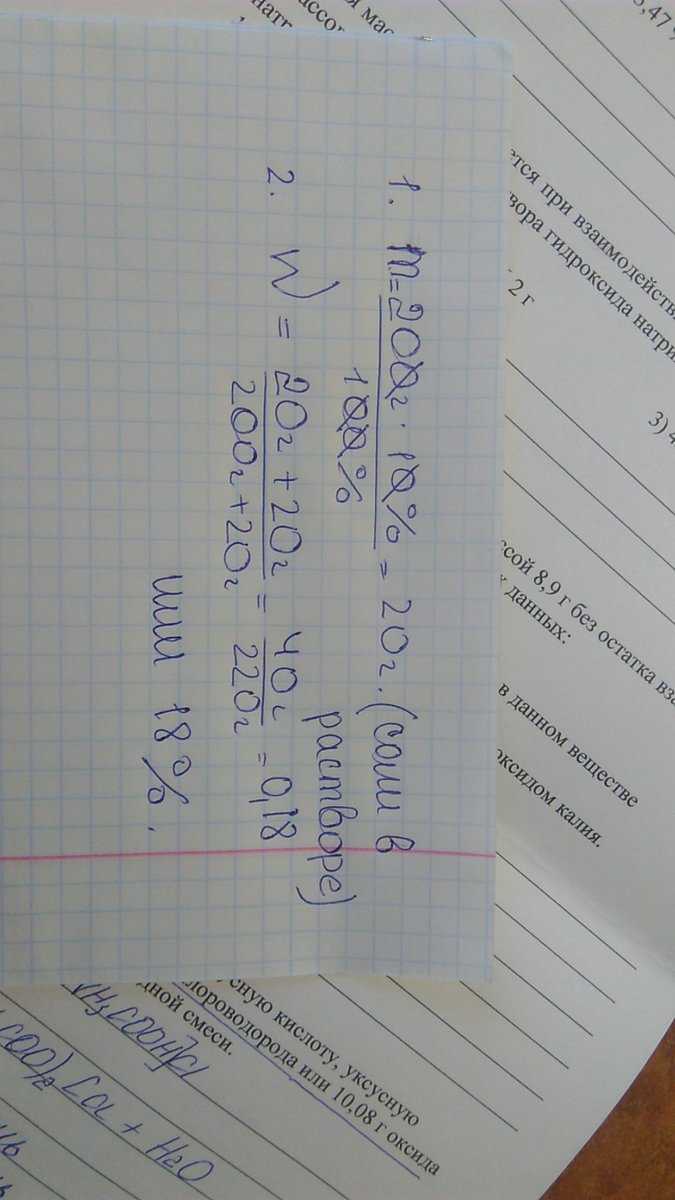 1. m = 200г · 10% / 100% = 20г. (соли в
растворе)
2. W = 20г + 20г / 200г + 20г = 40г / 220г = 0,18
или 18%.
5,47%
мас
ется при взаимодейств
гидроксида натри
2 г
3) 4
ссой 8,9 г без остатка вза
данных:
в данном веществе
оксидом калия.
кислоту, уксусную
лороводорода или 10,08 г оксида
дной смеси.
Ca + H2O